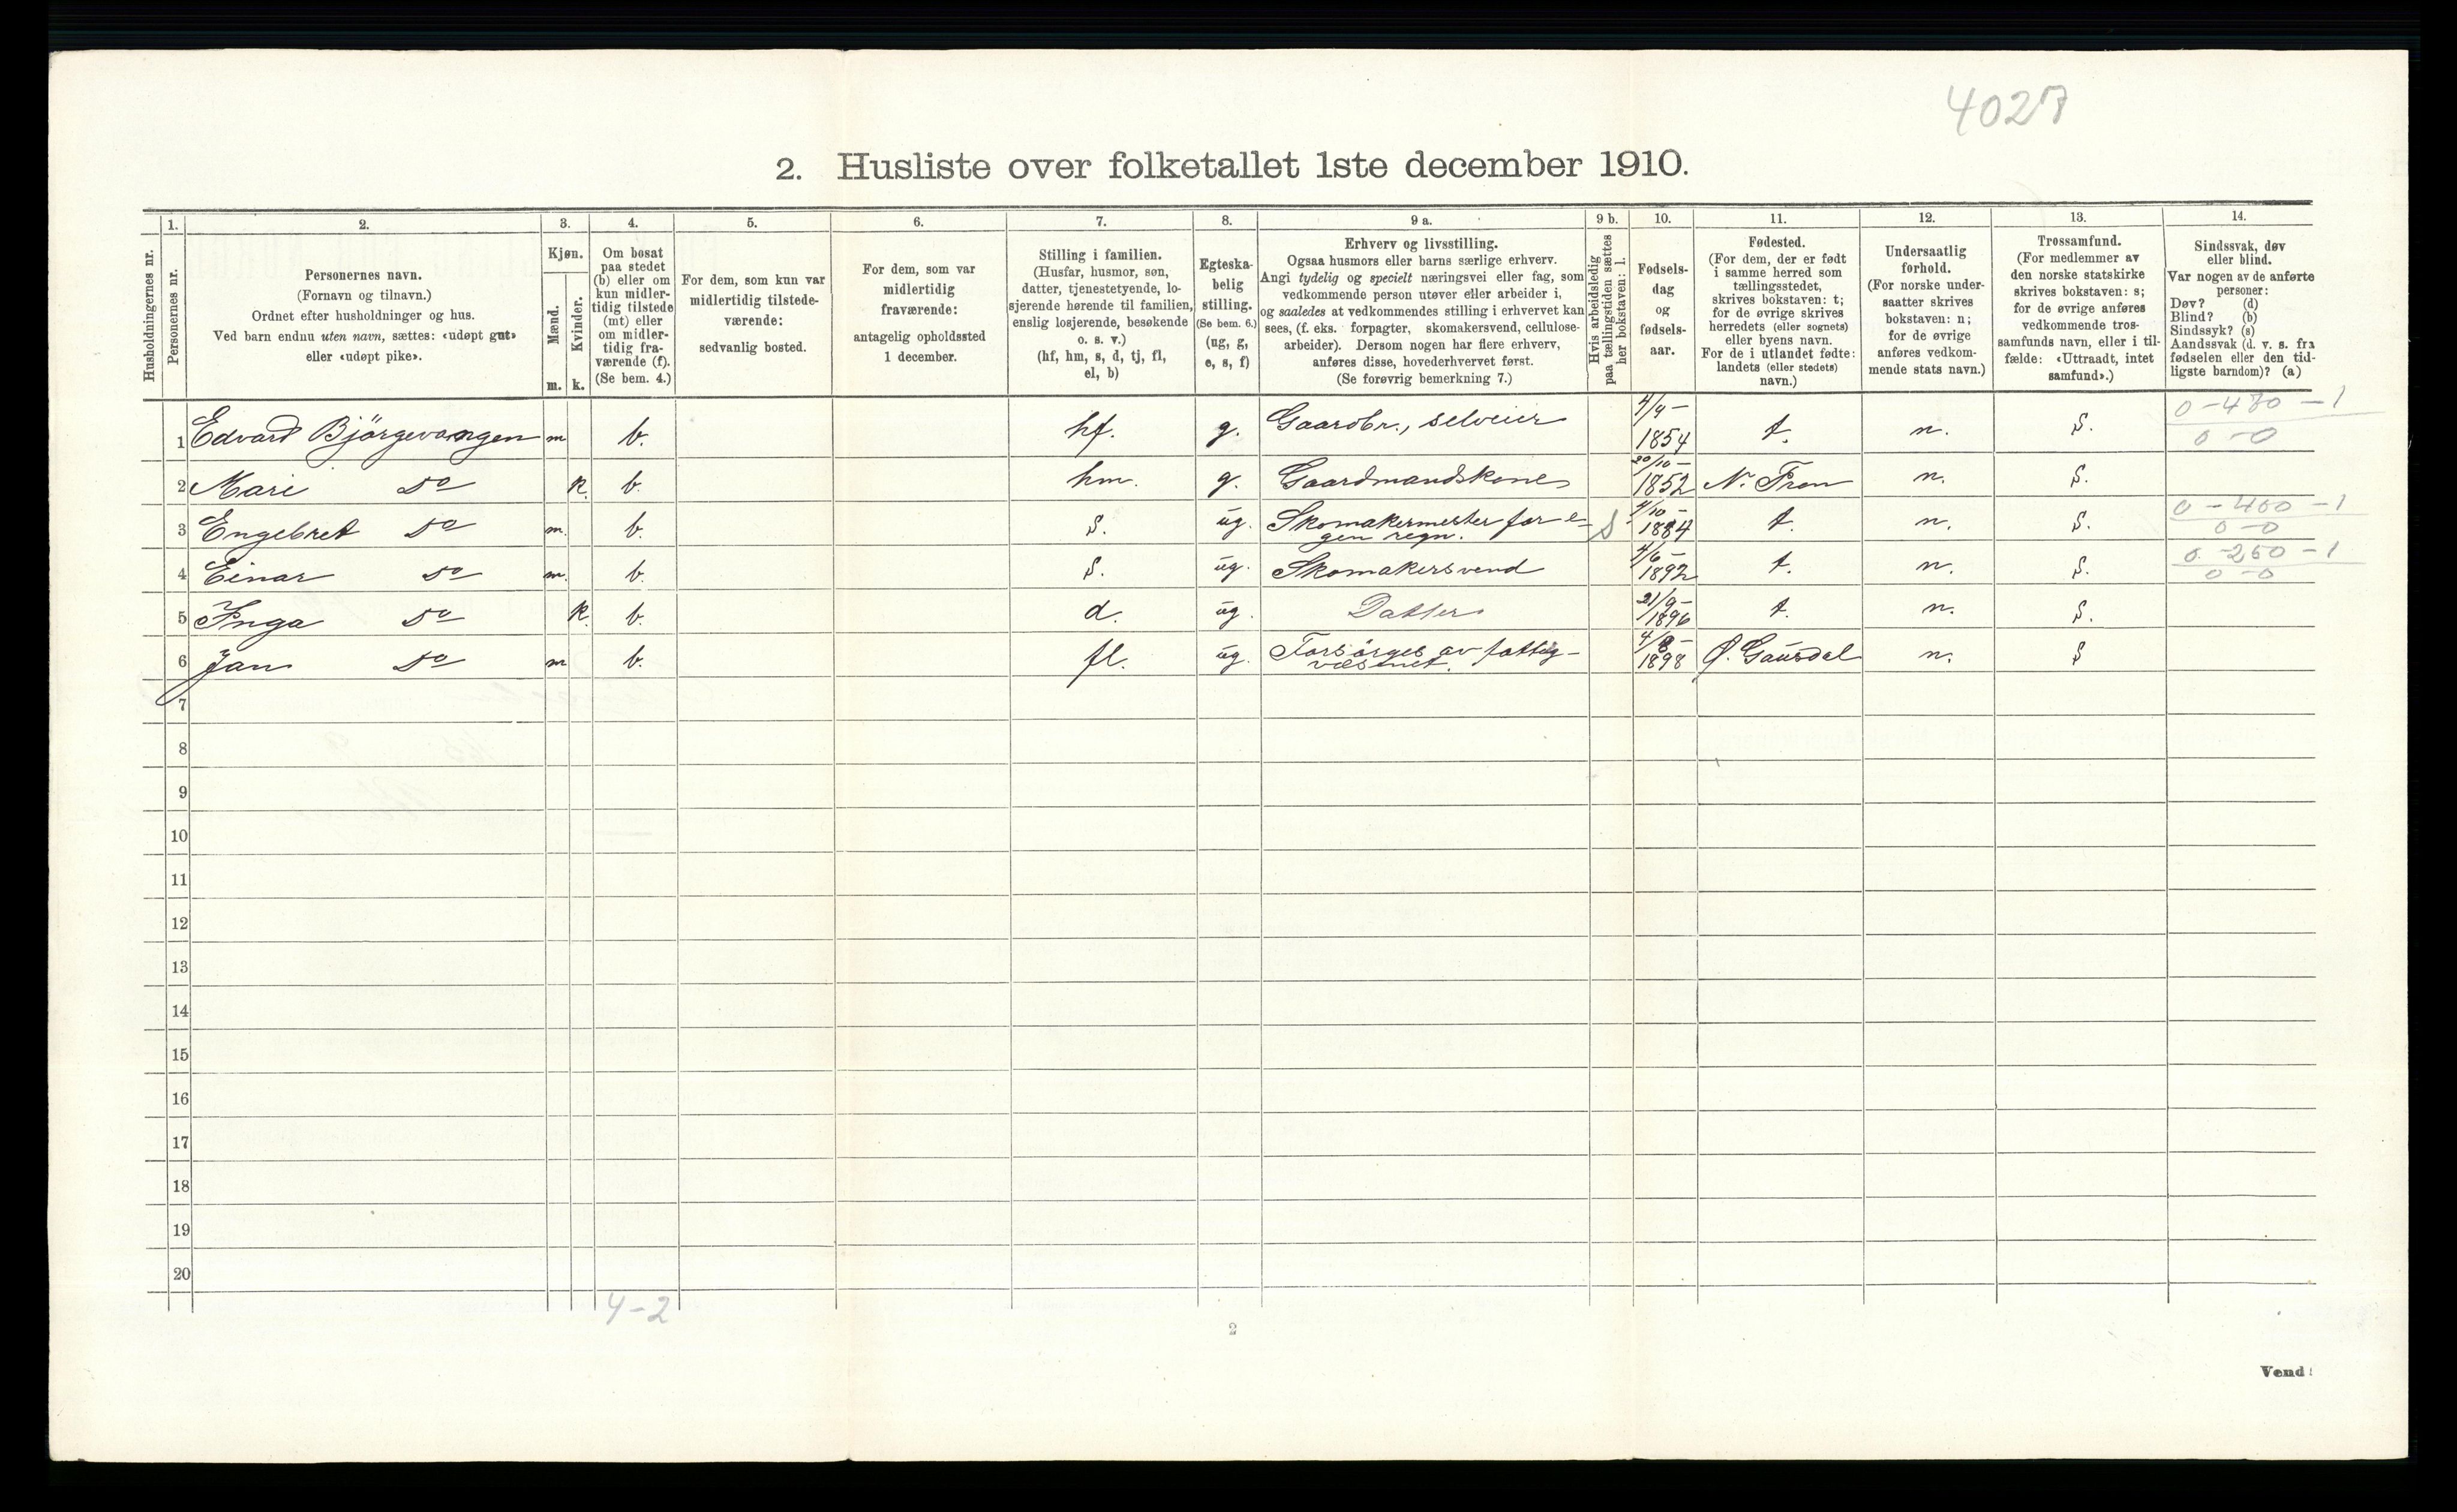 4027
2. Husliste over folketallet 1ste december 1910.
Husholdningernes nr.
1. Personernes nr.
2. Personernes navn.
(Fornavn og tilnavn.)
Ordnet efter husholdninger og hus.
Ved barn endnu uten navn, sættes: «udøpt gut»
eller «udøpt pike».
3. Kjøn.
Mænd. Kvinder.
m. k.
4. Om bosat
paa stedet
(b) eller om
kun midler-
tidig tilstede
(mt) eller
om midler-
tidig fra-
værende (f).
(Se bem. 4.)
5. For dem, som kun var
midlertidig tilstede-
værende:
sedvanlig bosted.
6. For dem, som var
midlertidig
fraværende:
antagelig opholdssted
1 december.
7. Stilling i familien.
(Husfar, husmor, søn,
datter, tjenestetyende, lo-
sjerende hørende til familien,
enslig losjerende, besøkende
o. s. v.)
(hf, hm, s, d, tj, fl,
el, b)
8. Egteska-
belig
stilling.
(Se bem. 6.)
(ug, g,
e, s, f)
9 a. Erhverv og livsstilling.
Ogsaa husmors eller barns særlige erhverv.
Angi tydelig og specielt næringsvei eller fag, som
vedkommende person utøver eller arbeider i,
og saaledes at vedkommendes stilling i erhvervet kan
sees, (f. eks. forpagter, skomakersvend, cellulose-
arbeider). Dersom nogen har flere erhverv,
anføres disse, hovederhvervet først.
(Se forøvrig bemerkning 7.)
9 b. Hvis arbeidsledig
paa tællingstiden sættes
her bokstaven: l.
10. Fødsels-
dag
og
fødsels-
aar.
11. Fødested.
(For dem, der er født
i samme herred som
tællingsstedet,
skrives bokstaven: t;
for de øvrige skrives
herredets (eller sognets)
eller byens navn.
For de i utlandet fødte:
landets (eller stedets)
navn.)
12. Undersaatlig
forhold.
(For norske under-
saatter skrives
bokstaven: n;
for de øvrige
anføres vedkom-
mende stats navn.)
13. Trossamfund.
(For medlemmer av
den norske statskirke
skrives bokstaven: s;
for de øvrige anføres
vedkommende tros-
samfunds navn, eller i til-
fælde: «Uttraadt, intet
samfund».)
14. Sindssvak, døv
eller blind.
Var nogen av de anførte
personer:
Døv? (d)
Blind? (b)
Sindssyk? (s)
Aandssvak (d. v. s. fra
fødselen eller den tid-
ligste barndom)? (a)
1 Edvard Bjørgevangen m b. hf. g. Gaardbr., selveier 4/9 - 1854 t. n. S. 0-480-1 0-0
2 Mari do k. b. hm. g. Gaardmandskone 20/10- 1852 N. Fron n. S.
3 Engebret do m. b. S. ug. Skomakermester for e-
gen regn. S 4/10- 1884 t. n. S. 0-400-1 0-0
4 Einar do m. b. S. ug. Skomakersvend 4/6- 1892 t. n. S. 0-250-1 0-0
5 Inga do k. b. d. ug. Datter 21/9- 1896 t. n. S.
6 Jan do m b. fl. ug. Forsørges av fattig-
væsenet. 4/8- 1898 Ø. Gausdal n. S
7
8
9
10
11
12
13
14
15
16
17
18
19
20
4-2
2
Vend!